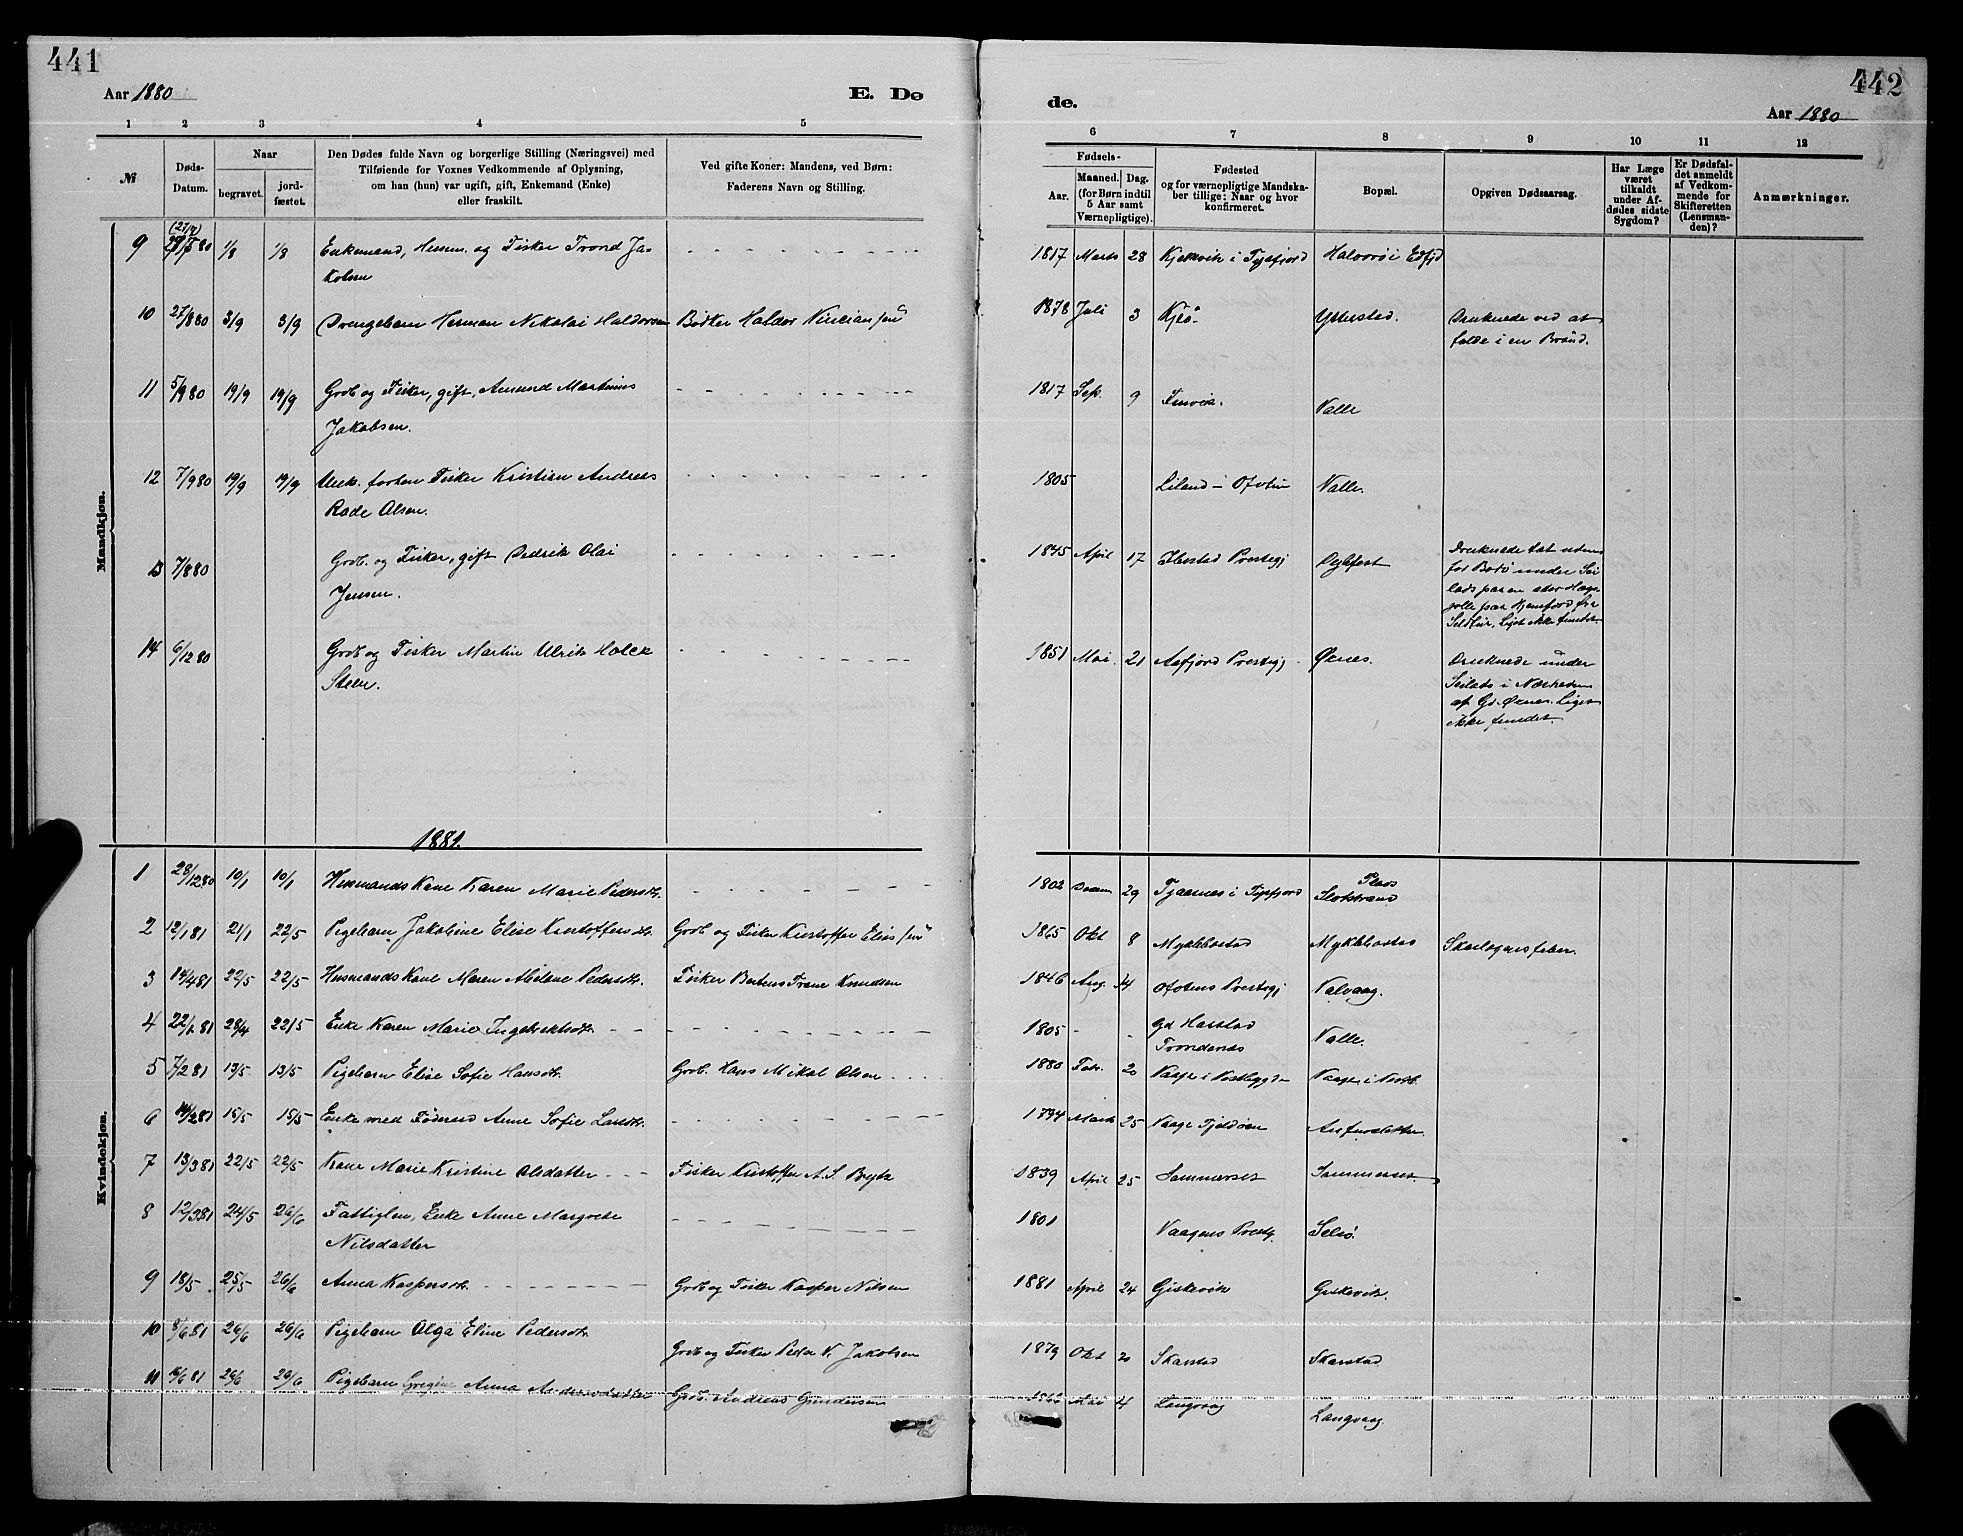 441
Aar 1880
E. Dø
1 2 3 4 5
№
Døds-
Datum.
Naar
begravet.
jord-
fæstet.
Den Dødes fulde Navn og borgerlige Stilling (Næringsvei) med
Tilføiende for Voxnes Vedkommende af Oplysning,
om han (hun) var ugift, gift, Enkemand (Enke)
eller fraskilt.
Ved gifte Koner: Mandens, ved Børn:
Faderens Navn og Stilling.
Mandkjøn.
9 1/8 1/8 Enkemand, Husm. og Fisker Trond Ja-
kobsen
10 27/8 80 3/9 3/9 Drengebarn Herman Nikolai Haldorsen Bødker Haldor
11 5/9 80 19/9 19/9 Grdb og Fisker, gift, Amund Martinus
Jakobsen.
12 7/9 80 19/9 19/9 forhen Fisker Kristian Andreas
Rode Olsen.
13 7/8 80 Grdb. og Fisker, gift Dedrik Olai
Jensen.
14 6/12 80 Grdb og Fisker Martin Ulrik Holck
Steen.
1881.
Kvindekjøn.
1 28/12 80 10/1 10/1 Husmands Kone Karen Marie Pedersdtr.
2 12/1 81 21/1 22/5 Pigebarn Jakobine Elise Kristoffersdtr. Grdb og Fisker Kristoffer Elias
3 14/4 81 22/5 22/5 Husmands Kone Maren Abelone Pedersdtr. Fisker Bertheus Trane Knudsen
4 22/1 81 28/4 22/5 Enke Karen Marie Ingebrektsdtr.
5 7/2 81 13/5 13/5 Pigebarn Elise Sofie Hansdtr. Grdb. Hans Mikal Olsen
6 14/2 81 15/5 15/5 Enke med Føderaad Anne Sofie Larsdtr.
7 13/3 81 22/5 22/5 Kone Marie Kristine Olsdatter Fisker Kristoffer A. S. Bryde
8 12/3 81 24/5 26/6 Fattiglem, Enke Anne Margrete
Nilsdatter
9 18/5 25/5 26/6 Anna Kaspersdtr. Grdb og Fisker Kasper Nilsen
10 8/6 81 26/6 26/6 Pigebarn Olga Eline Pedersdtr.
Grdb og Fisker Peder N. Jakobsen
11 16/6 81 26/6 26/6 Pigebarn Gregine Anna Andreasdatter Grdb. Andreas Gundersen
442
de.
Aar 1880
6 7 8 9 10 11 12
Fødsels-
Aar.
Maaned. Dag.
(for Børn indtil
5 Aar samt
Værnepligtige).
Fødested
og for værnepligtige Mandska-
ber tillige: Naar og hvor
konfirmeret.
Bopæl.
Opgiven Dødsaarsag.
Har Læge
været
tilkaldt
under Af-
dødes sidste
Sygdom?
Er Dødsfal-
det anmeldt
af Vedkom-
mende for
Skifteretten
(Lensman-
den)?
Anmærkninger.
1817 Marts 28 Kjelkvik i Tysfjord Halvorøi Edfjd
1878 Juli 3 Kjeø. Ytterstad. Druknede ved at
falde i en Brønd.
1817 Sep. 9 Finvik. Valle
1805 Liland - Ofoten Valle.
1845 April 17 Ibestad Prestegj Dybfest Druknede tæt uden
for Bodø under Sei
lads paa en stor
Sildtur, Liget ikke fundet.
1851 Mai 21 Aafjord Prestegj. Øxnes. Druknede under
Seilads i Nærheden
af Gd. Øxnes. Liget
ikke fundet.
1802 Decem 29 Tjaarnes i Tysfjord Plads
Slotstrand
1865 Okt 8 Myklebostad Myklebostad Skarlagensfeber.
1846 Aug. 14 Ofotens Prestegj Valvaag.
1805 - - Gd Harstad
Trondenæs Valle.
1880 Febr. 20 Vaage i Vestbygd Vaage i Vestb.
1794 Marts 25 Vaage Tjeldøen
1839 April 25 Sommerset Sommerset
1801 Vaagens Prestg. Selsø.
1881 April 24 Giskevik Giskevik.
1879 Okt 20 Skarstad Skarstad
Mai 4 Langvaag Langvaag.